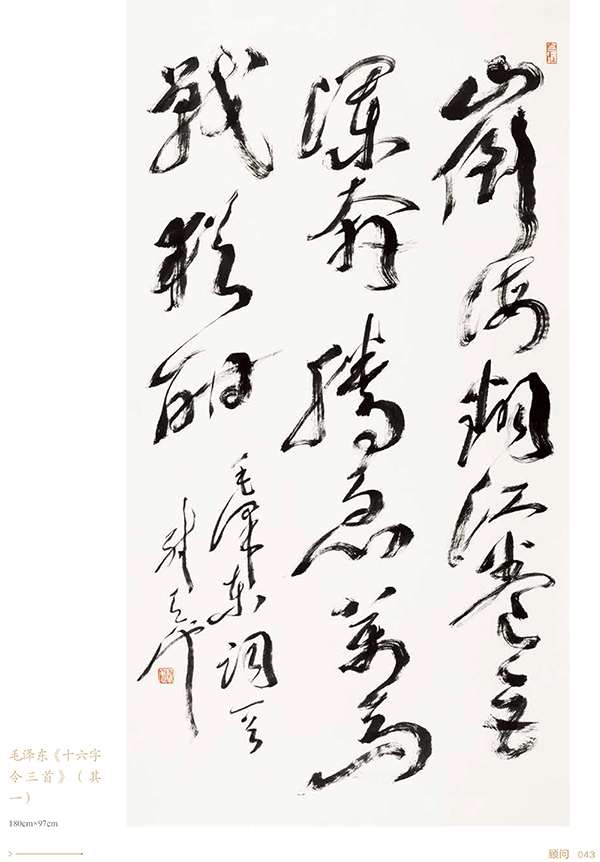 山倒海翻江卷巨
澜奔腾急萬马
戰犹酣
毛泽东词一首
毛泽东《十六字
令三首》（其
一）
180cm×97cm
顾问 043